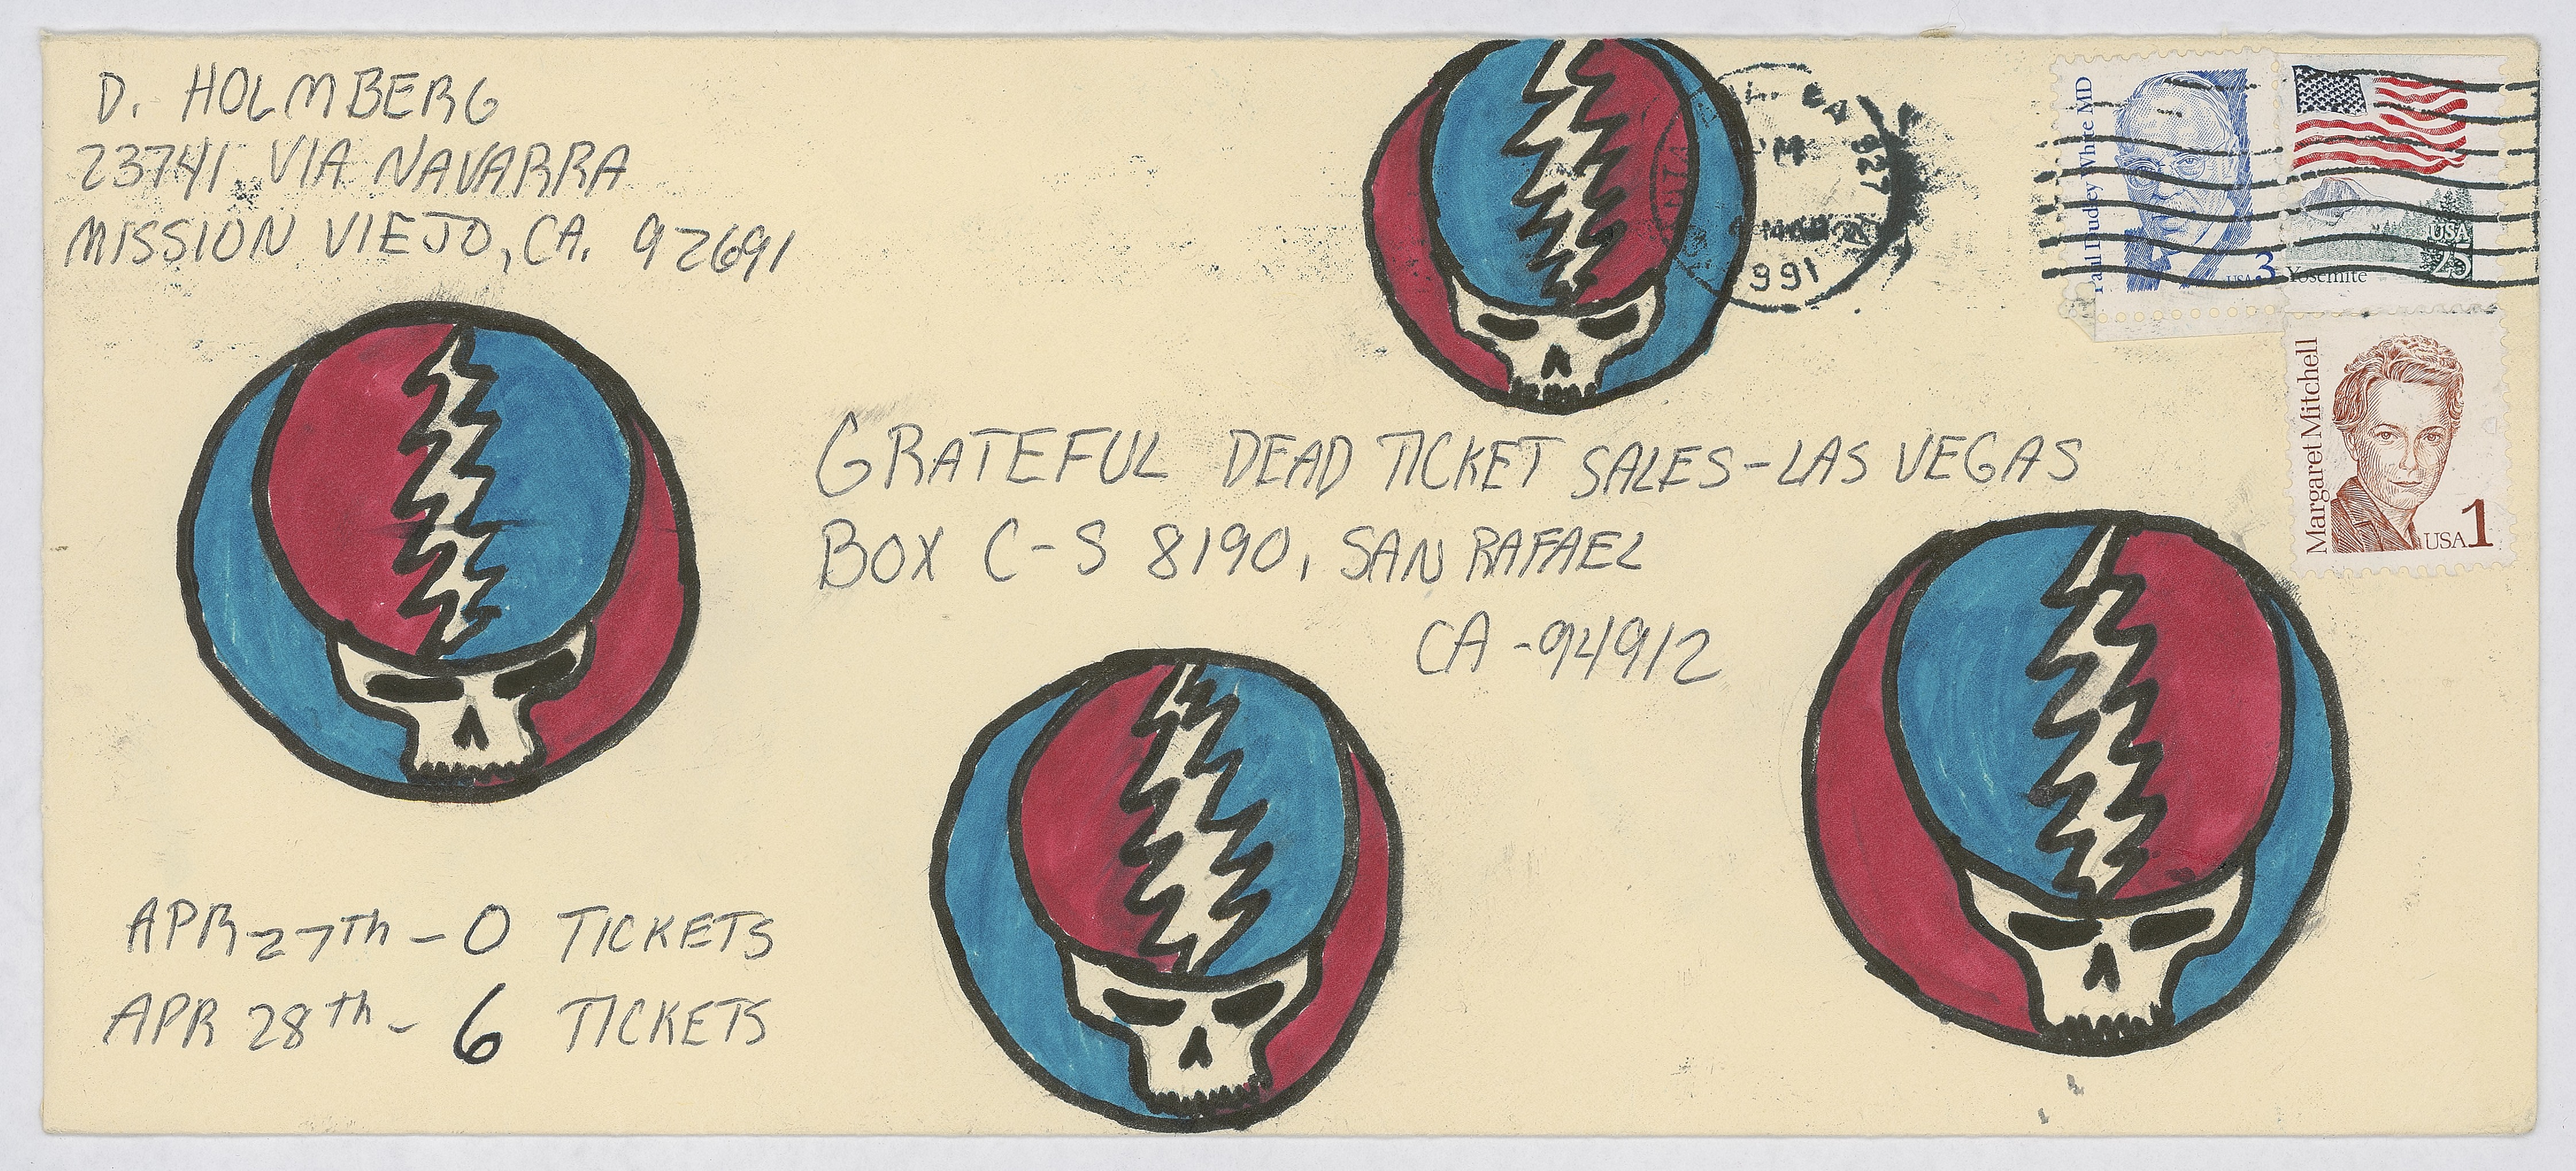 D. HOLMBERG
23741 VIA NAVARRA
MISSION VIEJO, CA. 92691
PM
927
MAR
1991
Paul Dudley White MD
USA 3
USA
25
Yosemite
Margaret Mitchell
USA 1
GRATEFUL DEAD TICKET SALES-LAS VEGAS
BOX C-S 8190, SAN RAFAEL
CA -94912
APR 27TH - 0 TICKETS
APR 28th - 6 TICKETS